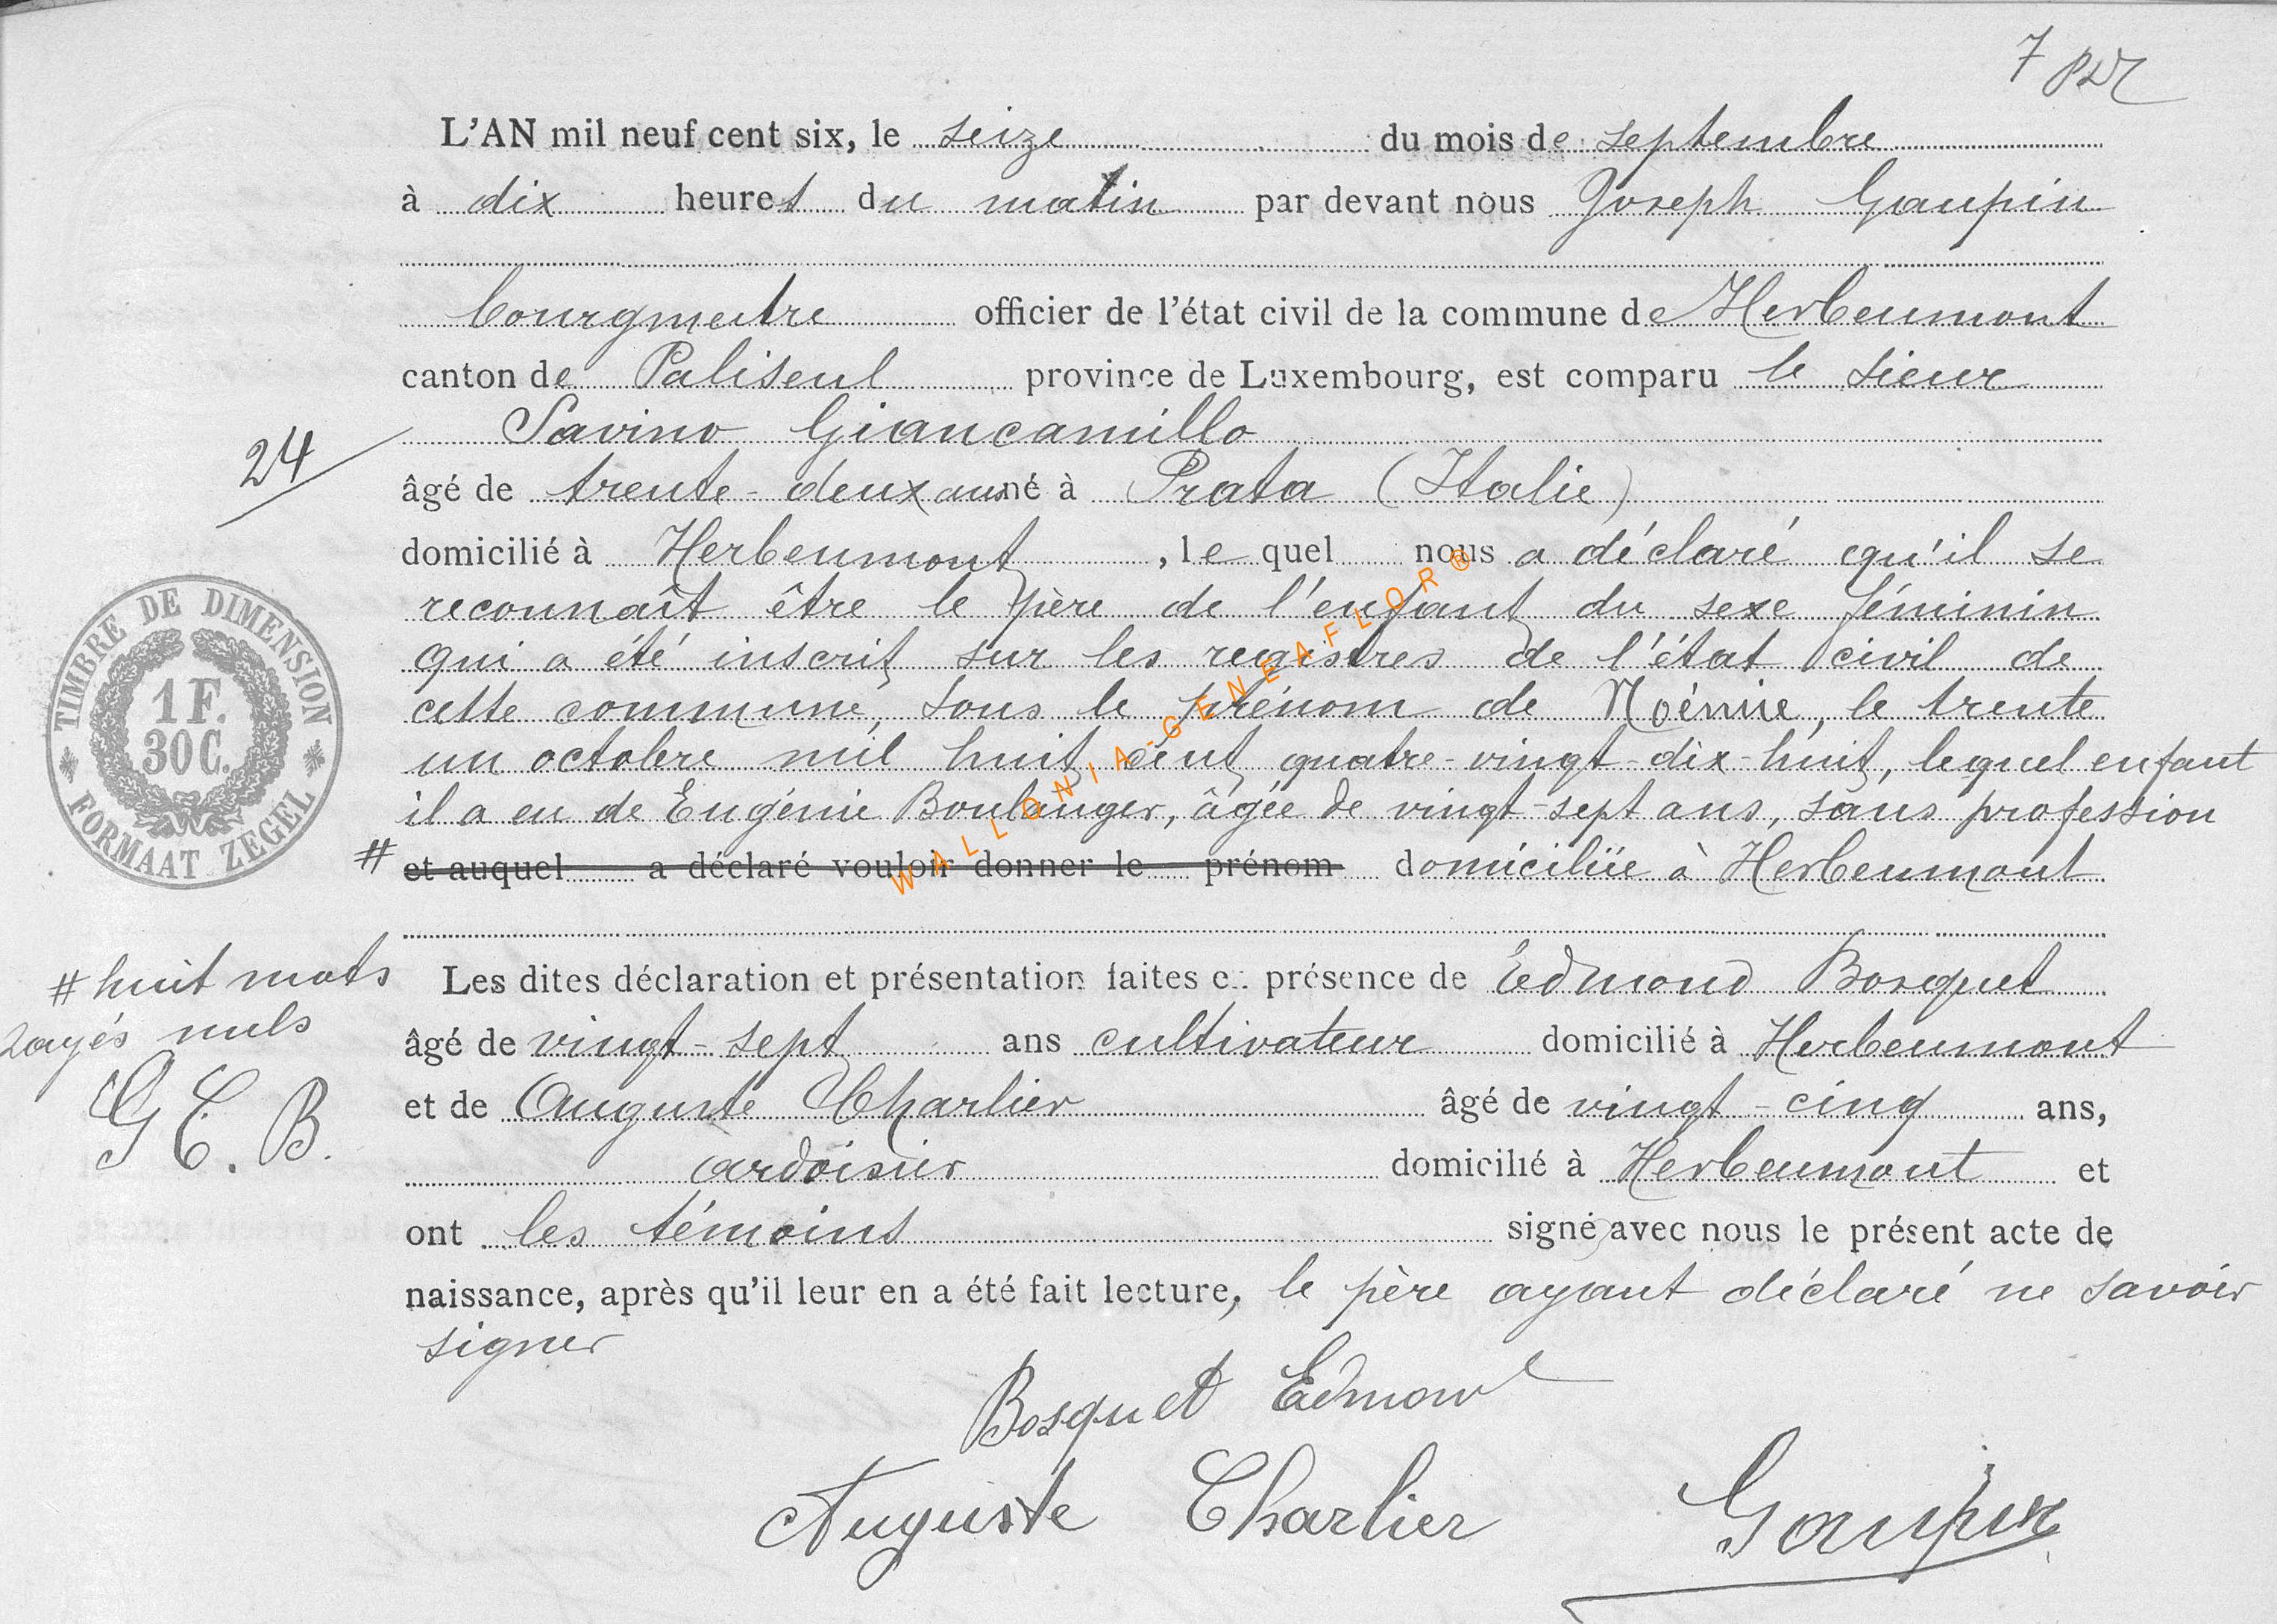 7
L'AN mil neuf cent six, le seize du mois de septembre
à dix heures du matin par devant nous Joseph Gaupin
bourgmestre officier de l'état civil de la commune de Herbeumont
canton de Paliseul province de Luxembourg, est comparu le sieur
Savino Giancamillo
24
âgé de trente-deux ans né à Prata (Italie)
domicilié à Herbeumont, lequel nous a déclaré qu'il se
reconnaît être le père de l'enfant du sexe féminin
qui a été inscrit sur les registres de l'état civil de
cette commune, sous le prénom de Noémie, le trente
un octobre mil huit cent quatre-vingt-dix-huit, lequel enfant
il a eu de Eugénie Boulanger, âgée de vingt-sept ans, sans profession
# et auquel a déclaré vouloir donner le prénom domiciliée à Herbeumont
TIMBRE DE DIMENSION
1 F.
30 C.
FORMAAT ZEGEL
WALLONIA-GENEAFLOR®
# huit mots
rayés nuls
G C. B.
Les dites déclaration et présentation faites en présence de Edmond Bosquet
âgé de vingt-sept ans cultivateur domicilié à Herbeumont
et de Auguste Charlier âgé de vingt-cinq ans,
ardoisier domicilié à Herbeumont et
ont les témoins signé avec nous le présent acte de
naissance, après qu'il leur en a été fait lecture, le père ayant déclaré ne savoir
signer
Bosquet Edmond
Auguste Charlier Gaupin